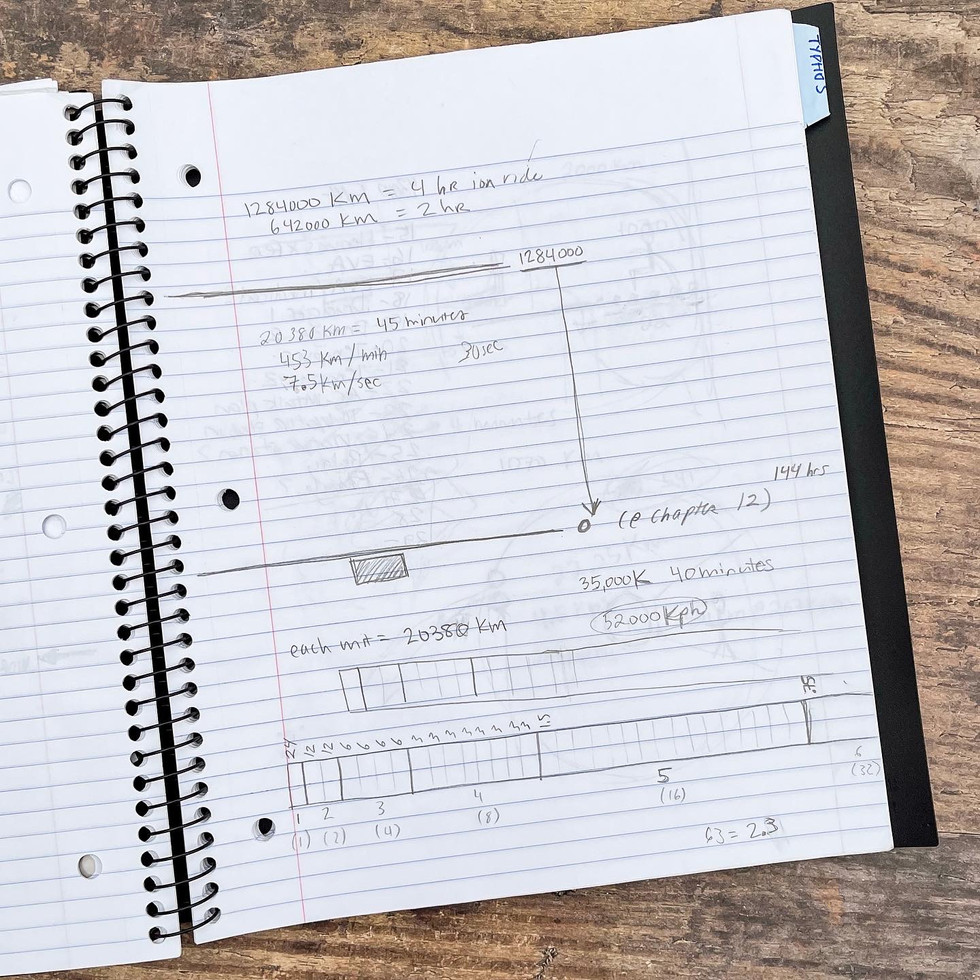 TYPHOS
1284000 Km = 4 hr ion ride
642000 Km = 2 hr
1284000
20380 Km = 45 minutes
453 Km/min 30sec
7.5 Km/sec
144 hrs
(@ chapter 12)
35,000K 40 minutes
52000 Kph
each unit = 20380 Km
24 12 12 6 6 6 6 3 3 3 3 3 3 3 3 1.5
1 2 3 4 5 6
(1) (2) (4) (8) (16) (32)
63 = 2.3